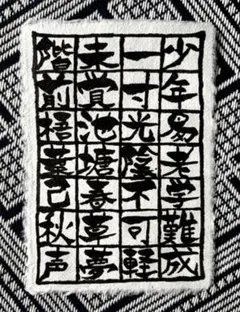 少年易老学難成
一寸光陰不可軽
未覚池塘春草夢
階前梧葉己秋声